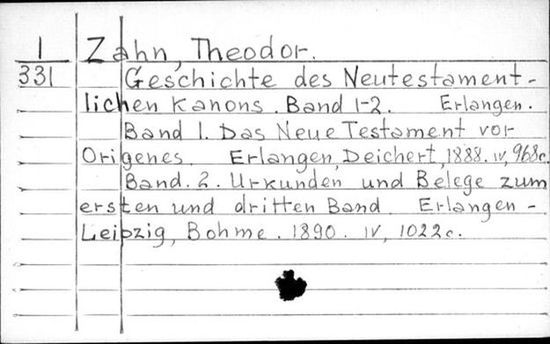 1 Zahn, Theodor.
331 Geschichte des Neutestament-
lichen Kanons. Band 1-2. Erlangen.
Band 1. Das Neue Testament vor
Origenes. Erlangen, Deichert, 1888. IV, 968c.
Band. 2. Urkunden und Belege zum
ersten und dritten Band. Erlangen-
Leipzig, Bohme. 1890. IV, 1022c.